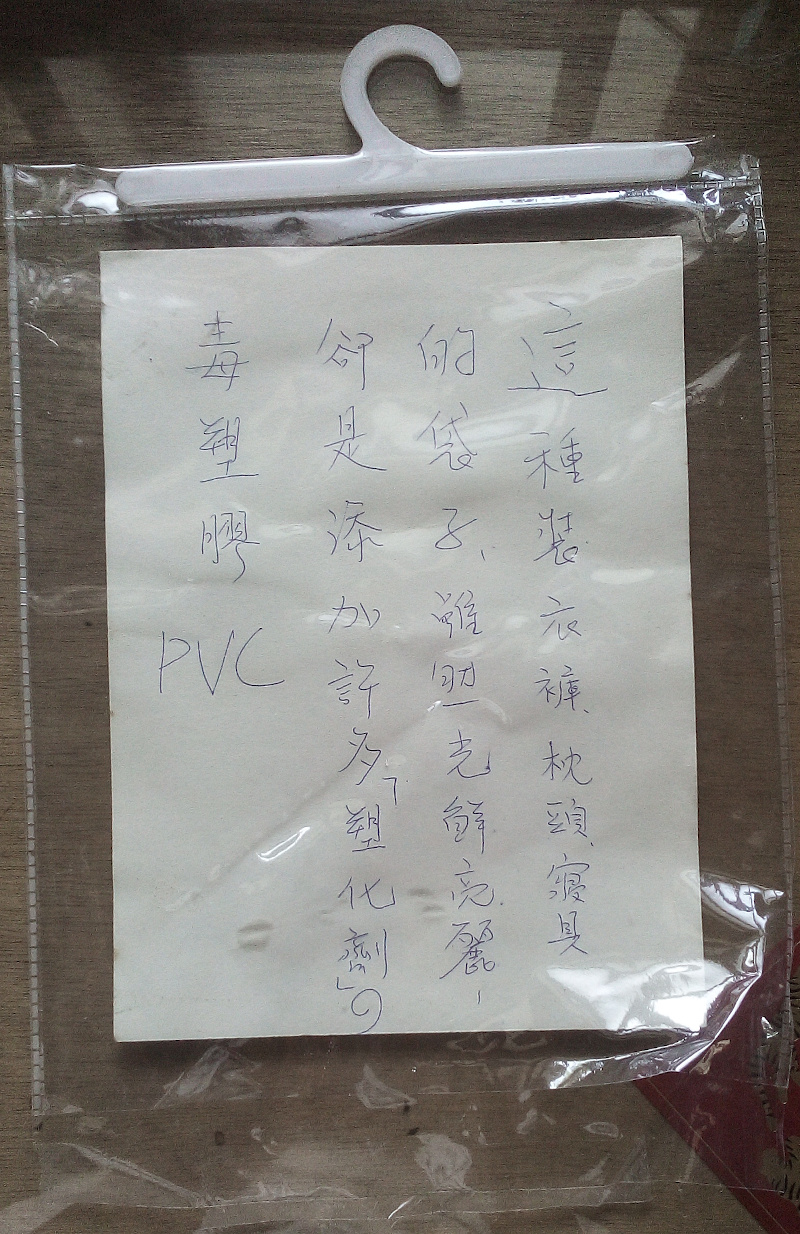 這種裝衣褲、枕頭、寢具
的袋子、雖然光鮮亮麗，
卻是添加許多「塑化劑」的
毒塑膠PVC